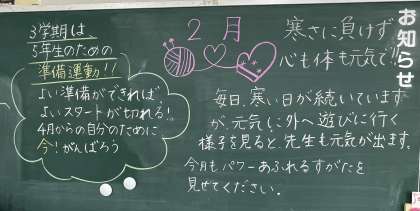 お知らせ
2月
寒さに負けず
心も体も元気で!!
毎日、寒い日が続いています
が、元気に外へ遊びに行く
様子を見ると、先生も元気が出ます。
今月もパワーあふれるすがたを
見せてください。
3学期は、
5年生のための
準備運動!!
よい準備ができれば、
よいスタートが切れる!
4月からの自分のために
今!がんばろう